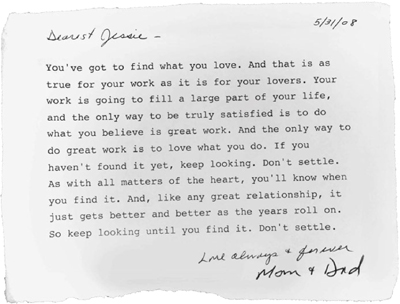 5/31/08
Dearest Jessie –
You've got to find what you love. And that is as
true for your work as it is for your lovers. Your
work is going to fill a large part of your life,
and the only way to be truly satisfied is to do
what you believe is great work. And the only way to
do great work is to love what you do. If you
haven't found it yet, keep looking. Don't settle.
As with all matters of the heart, you'll know when
you find it. And, like any great relationship, it
just gets better and better as the years roll on.
So keep looking until you find it. Don't settle.
Love always & forever
Mom & Dad